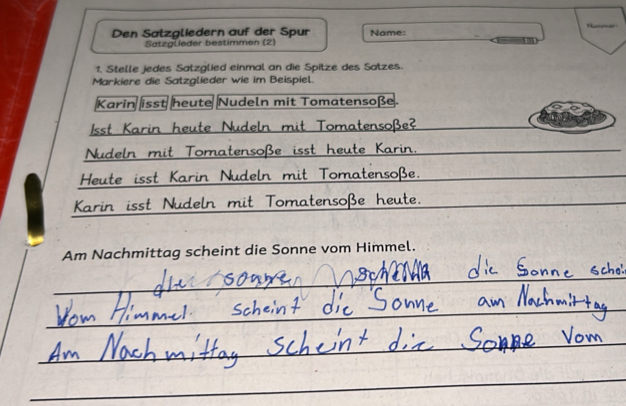 Den Satzgliedern auf der Spur
Satzglieder bestimmen (2)
Name:
Nummer:
1. Stelle jedes Satzglied einmal an die Spitze des Satzes.
Markiere die Satzglieder wie im Beispiel.
Karin isst heute Nudeln mit Tomatensoße.
Isst Karin heute Nudeln mit Tomatensoße?
Nudeln mit Tomatensoße isst heute Karin.
Heute isst Karin Nudeln mit Tomatensoße.
Karin isst Nudeln mit Tomatensoße heute.
Am Nachmittag scheint die Sonne vom Himmel.
die Sonne schei
Vom Himmel scheint die Sonne am Nachmittag
Am Nachmittag scheint die Sonne vom